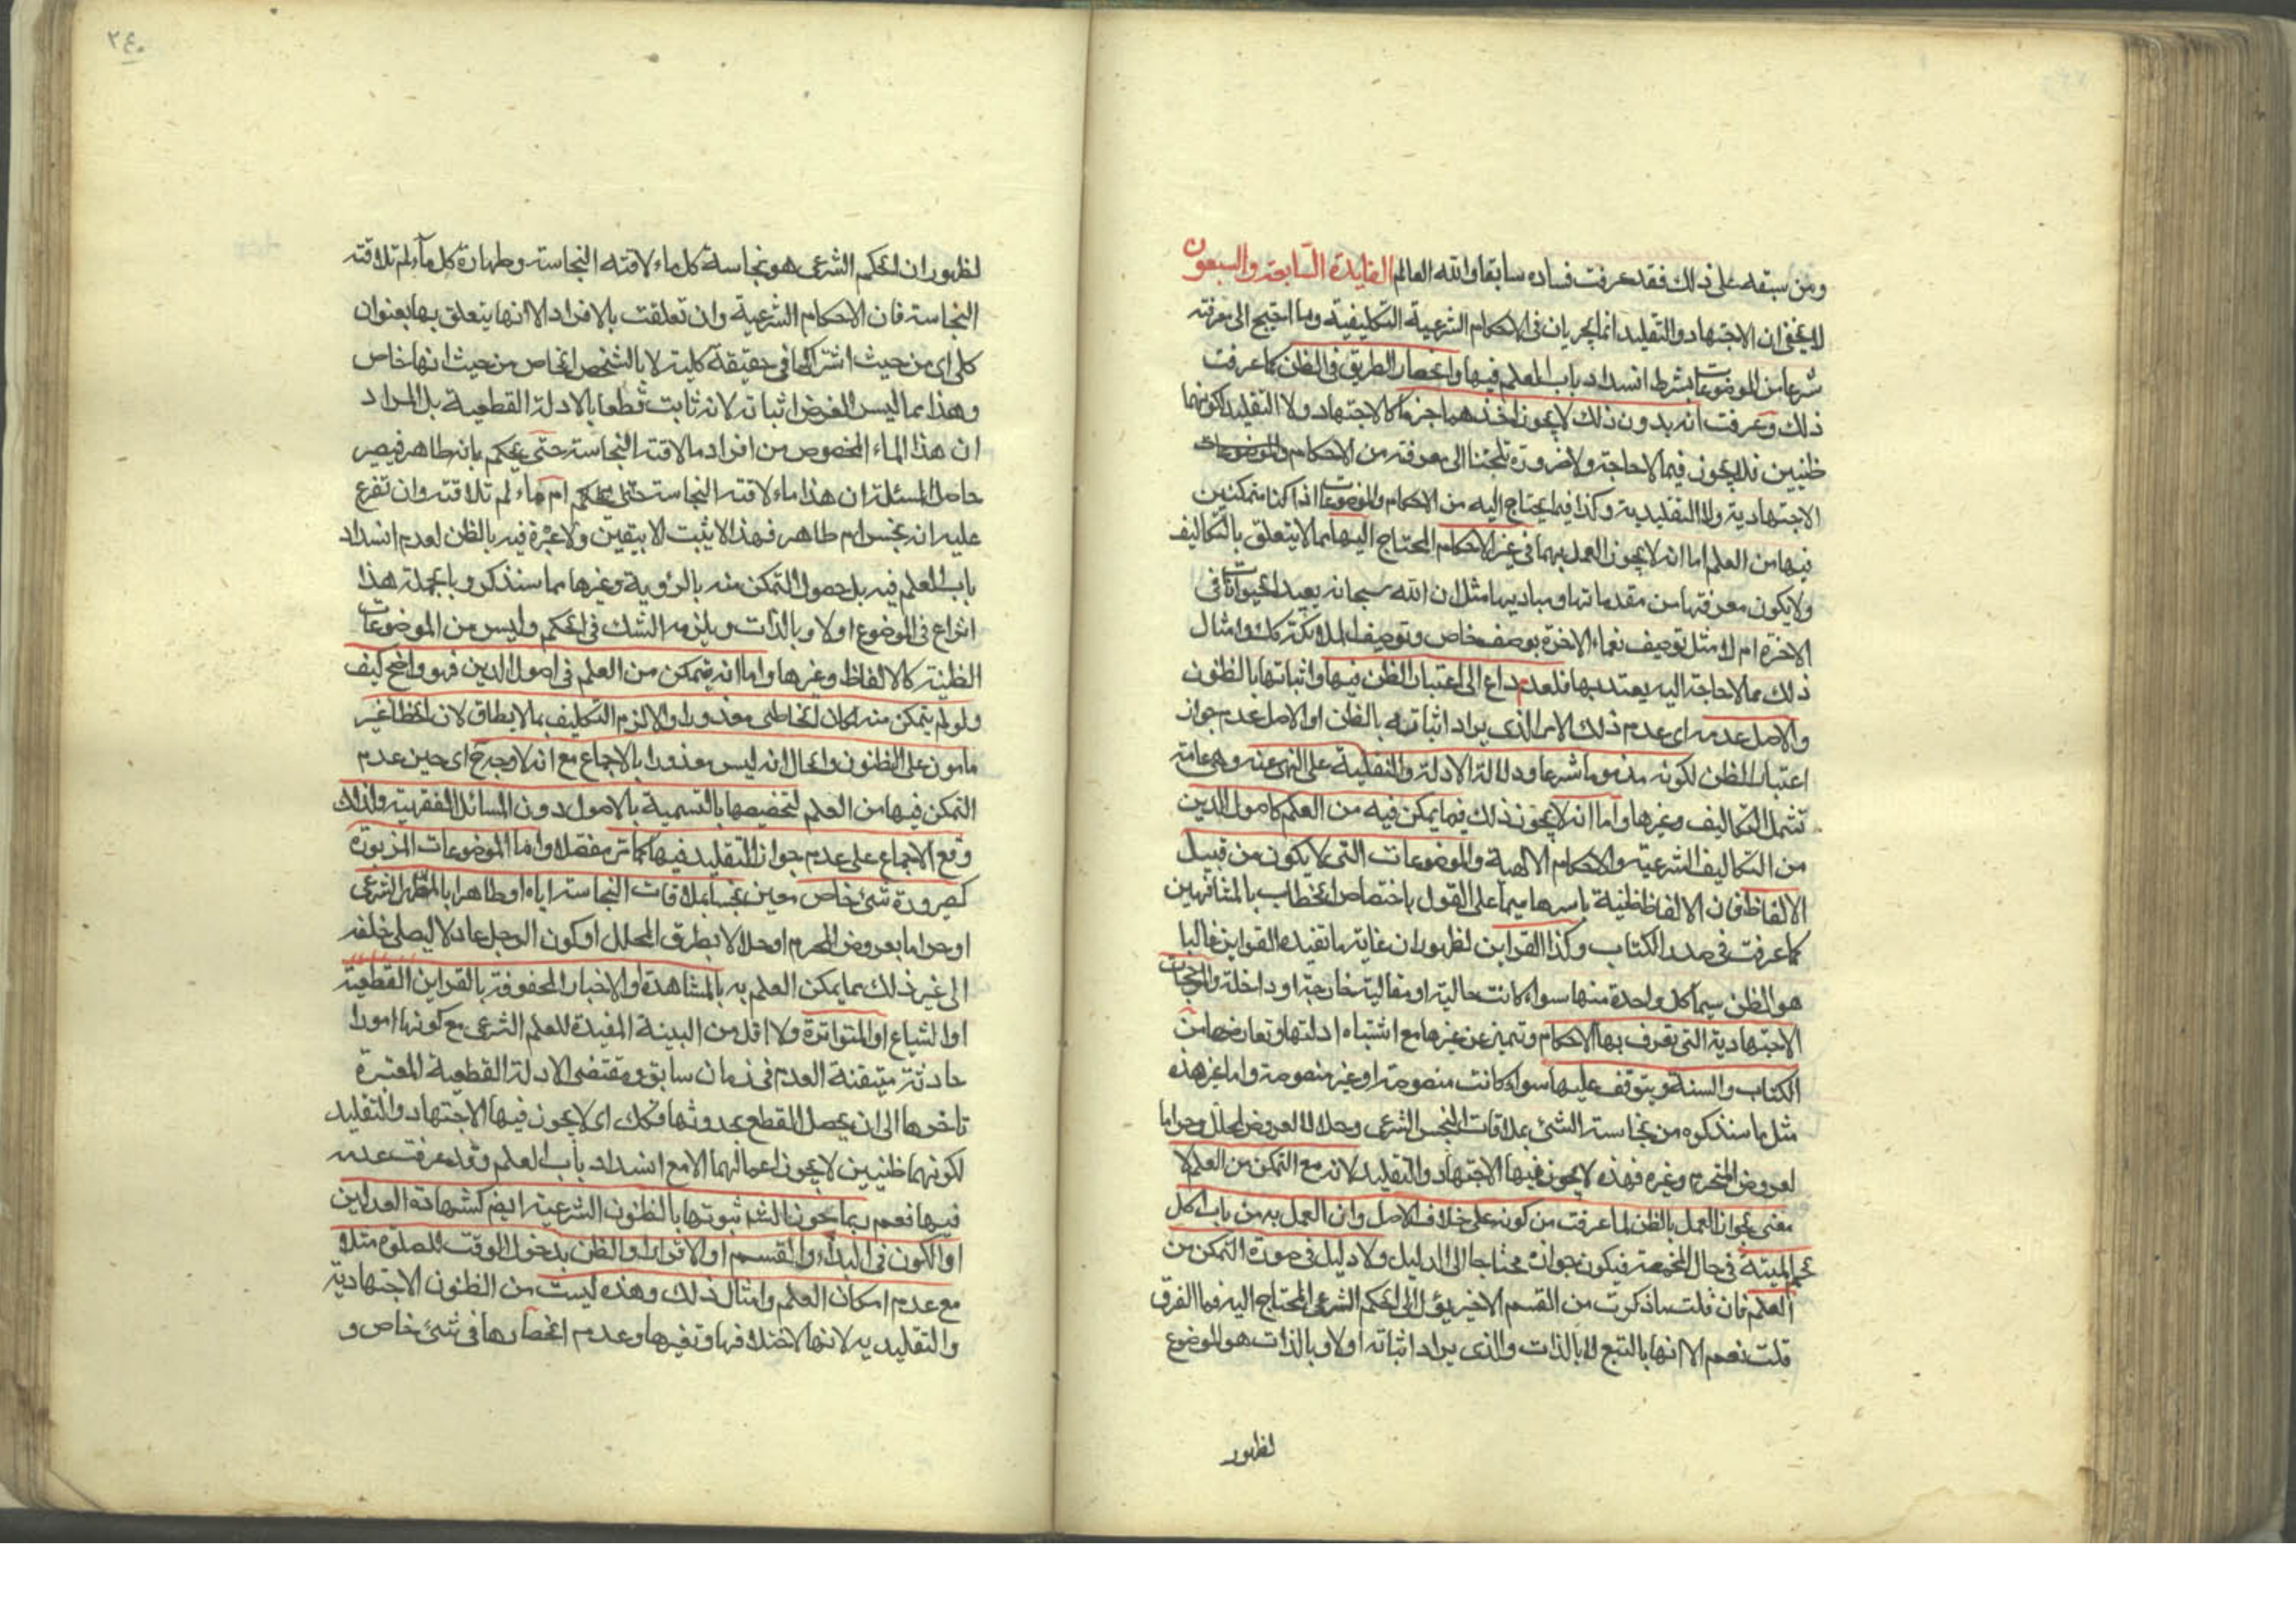 ومن سبقه على ذلك فقد عرفت فساده سابقا والله العالم الفايدة السابعة والسبعون
لا يخفى ان الاجتهاد والتقليد انما يجريان في الاحكام الشرعية التكليفية وما احتيج الى معرفته
شرعا من الموضوعات بشرط انسداد باب العلم فيها وانحصار الطريق في الظن كما عرفت
ذلك وعرفت انه بدون ذلك لا يجوز اخذهما جزما كالاجتهاد ولا التقليد لكونهما
ظنيين فلا يجوز فيما لا حاجة ولا ضرورة تلجئنا الى معرفته من الاحكام والموضوعات
الاجتهادية ولا التقليدية وكذا فيما يحتاج اليه من الاحكام والموضوعات اذا كنا متمكنين
فيها من العلم اما انه لا يجوز العمل بهما في غير الاحكام المحتاج اليها مما لا يتعلق بالتكاليف
ولا يكون معرفتها من مقدماتها ومباديها مثل ان الله سبحانه يعيد الحيوانات في
الاخرة ام لا مثل توصيف نعماء الاخرة بوصف خاص وتوصيف الملائكة كك وامثال
ذلك مما لا حاجة اليه يعتد بها فلعدم داع الى اعتبار الظن فيها واثباتها بالظنون
والاصل عدمه اى عدم ذلك الامر الذى يراد اثباته بالظن او الاصل عدم جواز
اعتبار الظن لكونه مذموما شرعا ودلالة الادلة والنقلية على النهى عنه وهى عامة
تشمل التكاليف وغيرها واما انه لا يجوز ذلك فيما يمكن فيه من العلم كاصول الدين
من التكاليف الشرعية والاحكام الالهية والموضوعات التى لا يكون من قبيل
الالفاظ فان الالفاظ ظنية باسرها سيما على القول باختصاص الخطاب بالمشافهين
كما عرفت في صدر الكتاب وكذا القراين لظهور ان غاية ما تفيده القراين غالبا
هو الظن سيما كل واحدة منها سواء كانت حالية او مقالية خارجة او داخلة والمرجحات
الاجتهادية التى تعرف بها الاحكام وتميز عن غيرها مع اشتباه ادلتها وتعارضها من
الكتاب والسنة ويتوقف عليها سواء كانت منصوصة او غير منصوصة واما غير هذه
مثل ما سنذكره من نجاسة الشئ بملاقات النجس الشرعى وحلالا لعروض المحلل وحراما
لعروض المحرم وغيره فهذه لا يجوز فيها الاجتهاد والتقليد لانه مع التمكن من العلم لا
معنى بجواز العمل بالظن لما عرفت من كونه على خلاف الاصل وان العمل به من باب اكل
لحم الميتة في حال المخمصة فيكون جوازه محتاجا الى الدليل ولا دليل في صورة التمكن من
العلم فان قلت ما ذكرت من القسم الاخير يؤل الى الحكم الشرعى المحتاج اليه فما الفرق
قلت نعم الا انها بالتبع لا بالذات والذى يراد اثباته اولا وبالذات هو الموضوع
لظهور
٢٤٠
لظهور ان الحكم الشرعى هو نجاسة كل ماء لاقته النجاسة وطهارة كل ماء لم تلاقته
النجاسة فان الاحكام الشرعية وان تعلقت بالافراد الا انها يتعلق بها بعنوان
كلى اى من حيث اشتراكها في حقيقة كلية لا بالشخص الخاص من حيث انها خاص
وهذا مما ليس الغرض اثباته لانه ثابت قطعا بالادلة القطعية بل المراد
ان هذا الماء المخصوص من افراد ما لاقته النجاسة حتى يحكم بانه طاهر فيصير
حاصل المسئلة ان هذا ماء لاقته النجاسة حتى يحكم ام ماء لم تلاقته وان تفرع
عليه انه نجس ام طاهر فهذا لا يثبت الا بيقين ولا عبرة فيه بالظن لعدم انسداد
باب العلم فيه بل حصول التمكن منه بالرؤية وغيرها مما سنذكر وبالجملة هذا
النزاع في الموضوع اولا وبالذات ويلزمه الشك في الحكم وليس من الموضوعات
الظنية كالالفاظ وغيرها واما انه يتمكن من العلم في اصول الدين فهو واضح كيف
ولو لم يتمكن منه لكان الخاطى معذورا والا لزم التكليف بما لا يطاق لان الخطا غير
مامون على الظنون والحال انه ليس معذورا بالاجماع مع انه لا وجه ح اى حين عدم
التمكن فيها من العلم لتخصيصها بالتسمية بالاصول دون المسائل الفقهية ولذلك
وقع الاجماع على عدم جواز التقليد فيها كما مر مفصلا واما الموضوعات المزبورة
كصيرورة شئ خاص معين نجسا بملاقات النجاسة اياه او طاهرا بالمطهر الشرعى
او حراما بعروض المحرم او حلالا بطرق المحلل او كون الرجل عادلا ليصلى خلفه
الى غير ذلك مما يمكن العلم به بالمشاهدة او الاخبار المحفوفة بالقراين القطعية
او الشياع او المتواترة ولا اقل من البينة المفيدة للعلم الشرعى مع كونها امورا
حادثة متيقنة العدم في زمان سابق ومقتضى الادلة القطعية المعتبرة
تاخرها الى ان يحصل القطع بحدوثها فكك اى لا يجوز فيها الاجتهاد والتقليد
لكونهما ظنيين لا يجوز اعمالهما الا مع انسداد باب العلم وقد عرفت عدمه
فيها نعم ربما يجوز الشرع ثبوتها بالظنون الشرعية ايضا كشهادة العدلين
او الكون في اليد او القسم او الاقرار والظن بدخول الوقت للصلوة مثلا
مع عدم امكان العلم وامثال ذلك وهذه ليست من الظنون الاجتهادية
والتقليديه لانها لاختلافها وتغيرها وعدم انحصارها في شئ خاص و